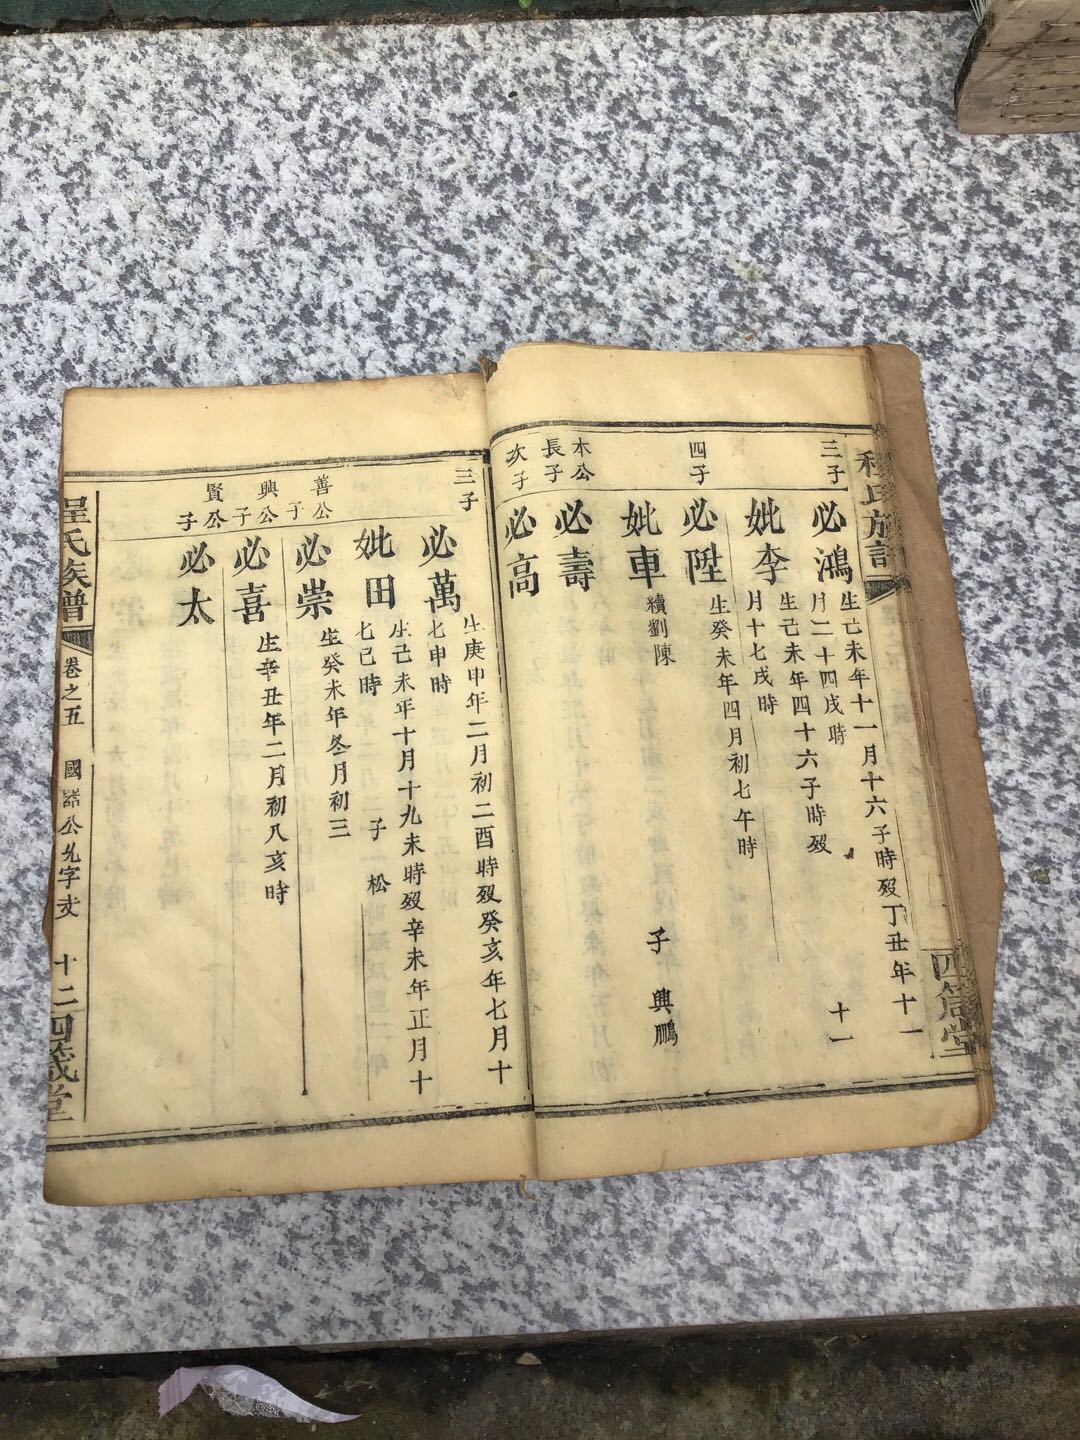 程氏族譜
四箴堂
三子
必鴻
生己未年十一月十六子時殁丁丑年十一
月二十四戌時
十一
妣李
生己未年四十六子時殁
月十七戌時
四子
必陞
生癸未年四月初七午時
妣車
續劉陳
子 興鵬
木公
長子
必壽
次子
必高
三子
必萬
生庚申年二月初二酉時殁癸亥年七月十
七申時
妣田
生己未年十月十九未時殁辛未年正月十
七己時
子 松
善公
子
必崇
生癸未年冬月初三
興公
子
必喜
生辛丑年二月初八亥時
賢公
子
必太
程氏族譜
卷之五
國 公允字支
十二
四箴堂